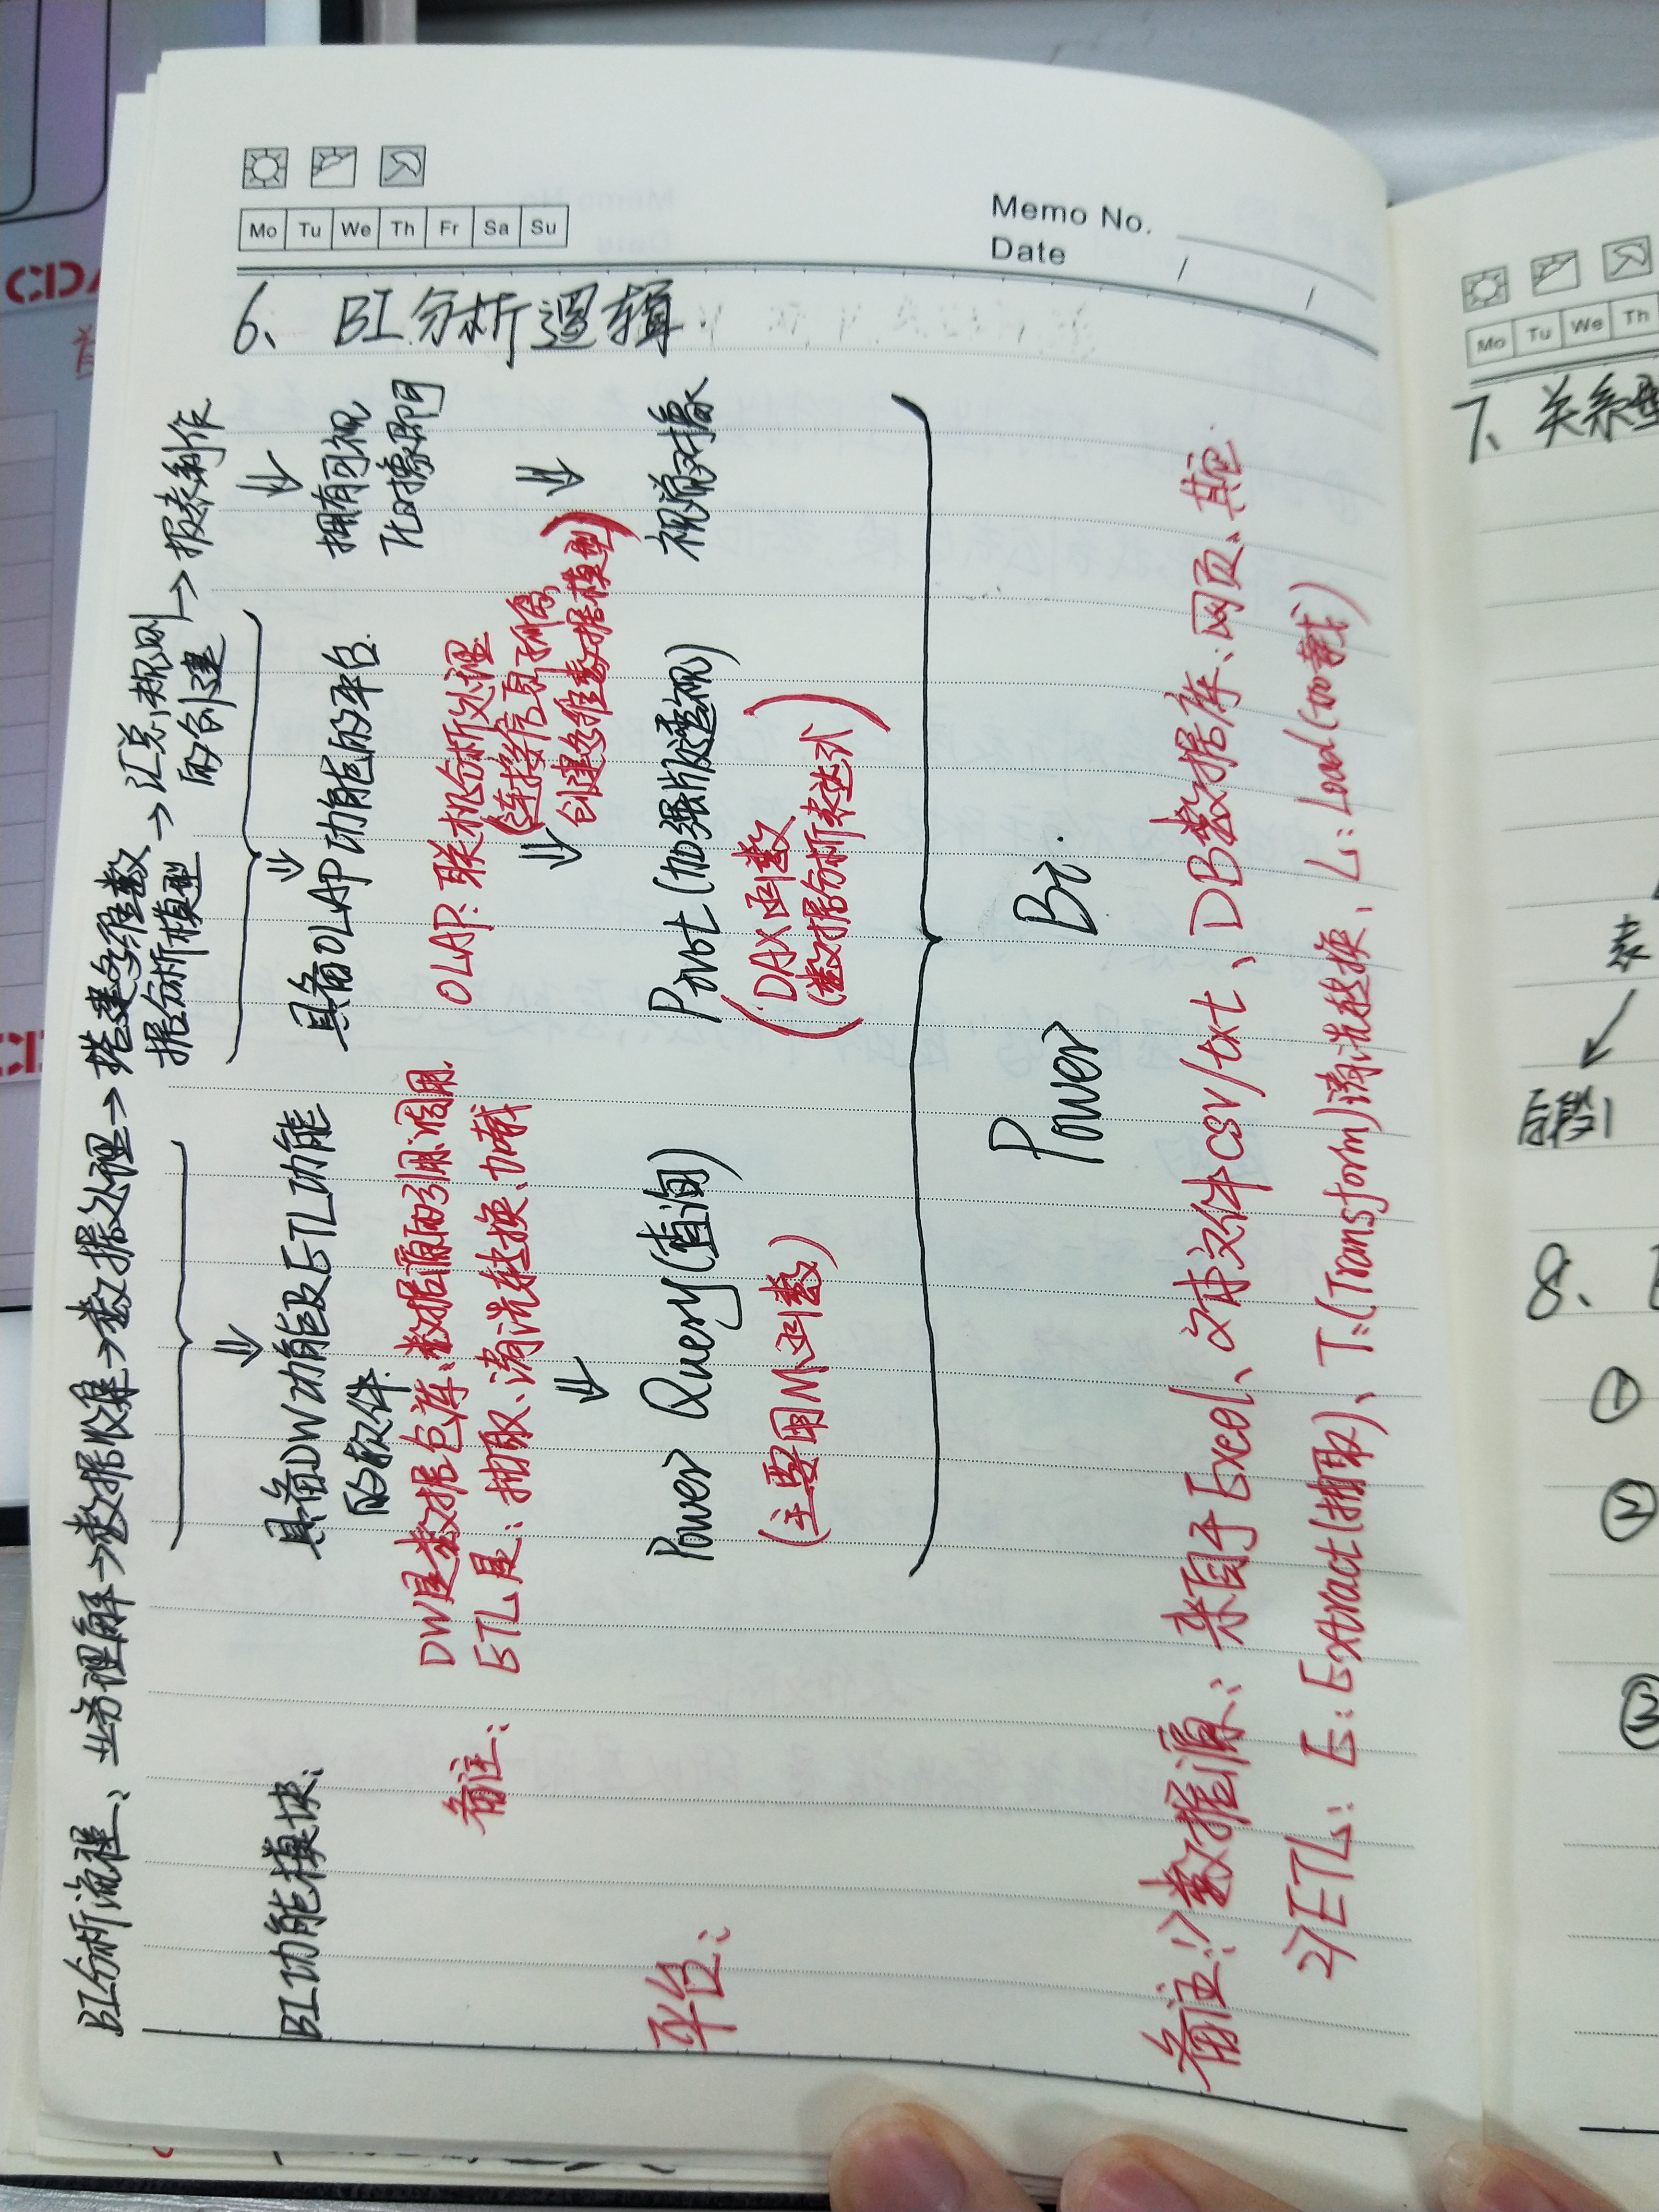 Mo Tu We Th Fr Sa Su
Memo No.
Date / /
6、BI分析逻辑
BI分析流程、业务理解→数据收集→数据处理→搭建多维数据分析模型→汇总规则的创建→报表制作
BI功能模块:
具备DW功能及ETL功能
的软件.
具备OLAP功能的平台.
拥有可视
化对象即可
备注:
DW是数据仓库:数据源的引用调用.
ETL是:抽取、清洗转换、加载
OLAP:联机分析处理
(连接信息孤岛,
创建多维数据模型)
平台:
Power Query(查询)
(主要用M函数)
Pivot(加强版透视)
(DAX函数
(数据分析表达式)
视觉对象
Power Bi.
备注:1)数据源:来自于Excel、文本文件csv/txt、DB数据库、网页、其它
2)ETL:E:Extract(抽取)、T:(Transform)清洗转换、L:Load(加载)
Mo Tu We Th
7、关系型
表
后段1
8、
①
②
③
CDA